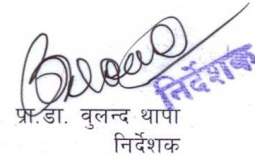 निर्देशक
प्रा.डा. वुलन्द थापा
निर्देशक